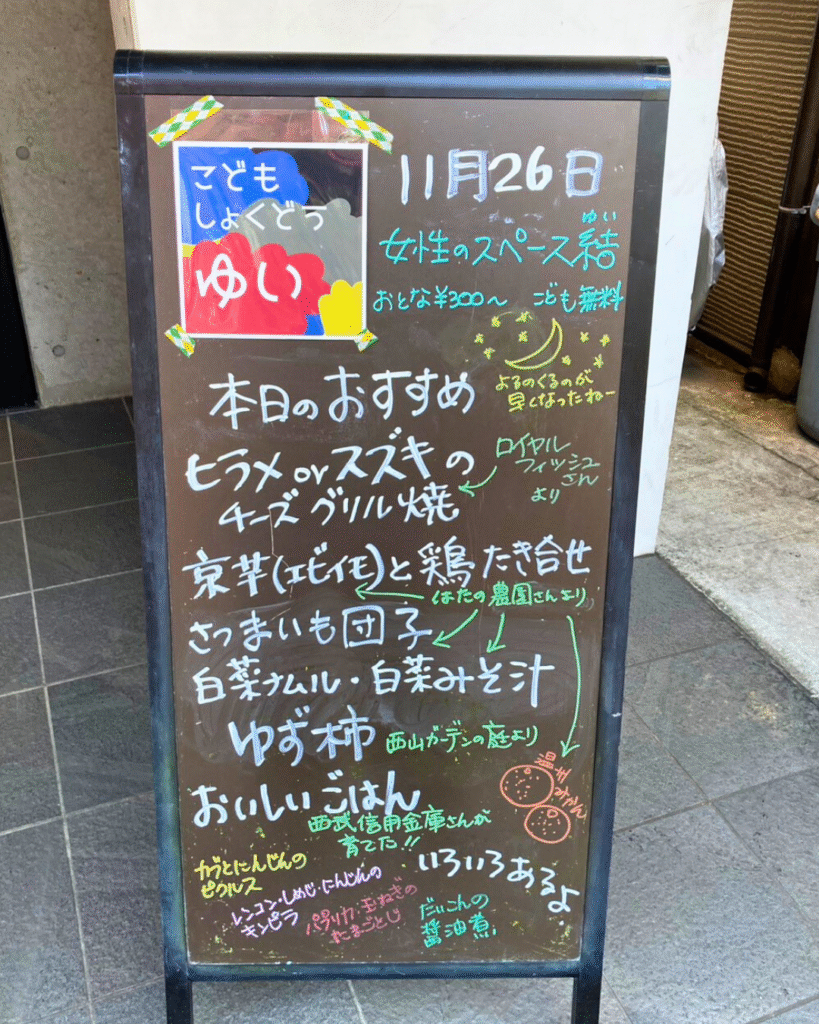 こども
しょくどう
ゆい
11月26日
ゆい
女性のスペース結
おとな¥300～ こども無料
よるのくるのが
早くなったねー
本日のおすすめ
ヒラメorスズキの
チーズグリル焼
ロイヤル
フィッシュ
さん
より
京芋(エビイモ)と鶏たき合せ
はたの農園さんより
さつまいも団子
白菜ナムル・白菜みそ汁
ゆず柿
西山ガーデンの庭より
温州
みかん
おいしいごはん
西武信用金庫さんが
育てた!!
いろいろあるよ
カブとにんじんの
ピクルス
レンコン・しめじ・にんじんの
キンピラ
パプリカ・玉ねぎの
たまごとじ
だいこんの
醤油煮